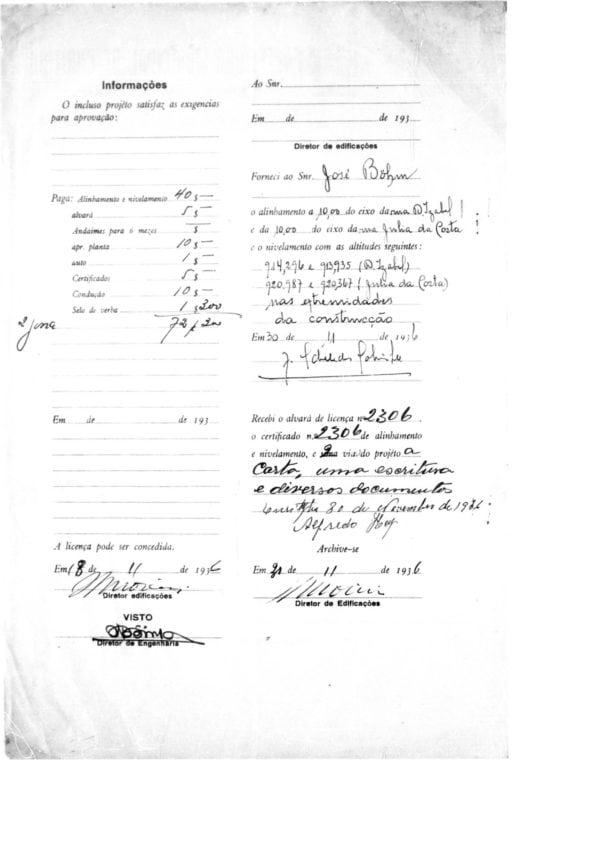 Informações
O incluso projéto satisfaz as exigencias
para aprovação:
Paga: Alinhamento e nivelamento 40$—
alvará 5$—
Andaimes para 6 mezes — $
apr. planta 10$—
auto 1$—
Certificados 5$—
Condução 10$—
Selo de verba 1$200
72$200
Em de de 193
A licença pode ser concedida.
Em 18 de 11 de 1936
Diretor edificações
VISTO
Diretor de Engenharia
Ao Snr.
Em de de 193
Diretor de edificações
Forneci ao Snr. José Böhm
o alinhamento a 10,00 do eixo da rua D. Izabel
e da 10,00 do eixo da rua Julia da Costa
e o nivelamento com as altitudes seguintes:
914,296 e 913,935 (D. Izabel)
920,987 e 920,367 (Julia da Costa)
nas extremidades
da construcção
Em 30 de 11 de 1936
Recebi o alvará de licença n. 2306
o certificado n. 2306 de alinhamento
e nivelamento, e 2na via do projéto a
Carta, uma escritura
e diversos documentos
30 de Novembro de 1936
Alfredo
Archive-se
Em de 11 de 1936
Diretor de Edificações